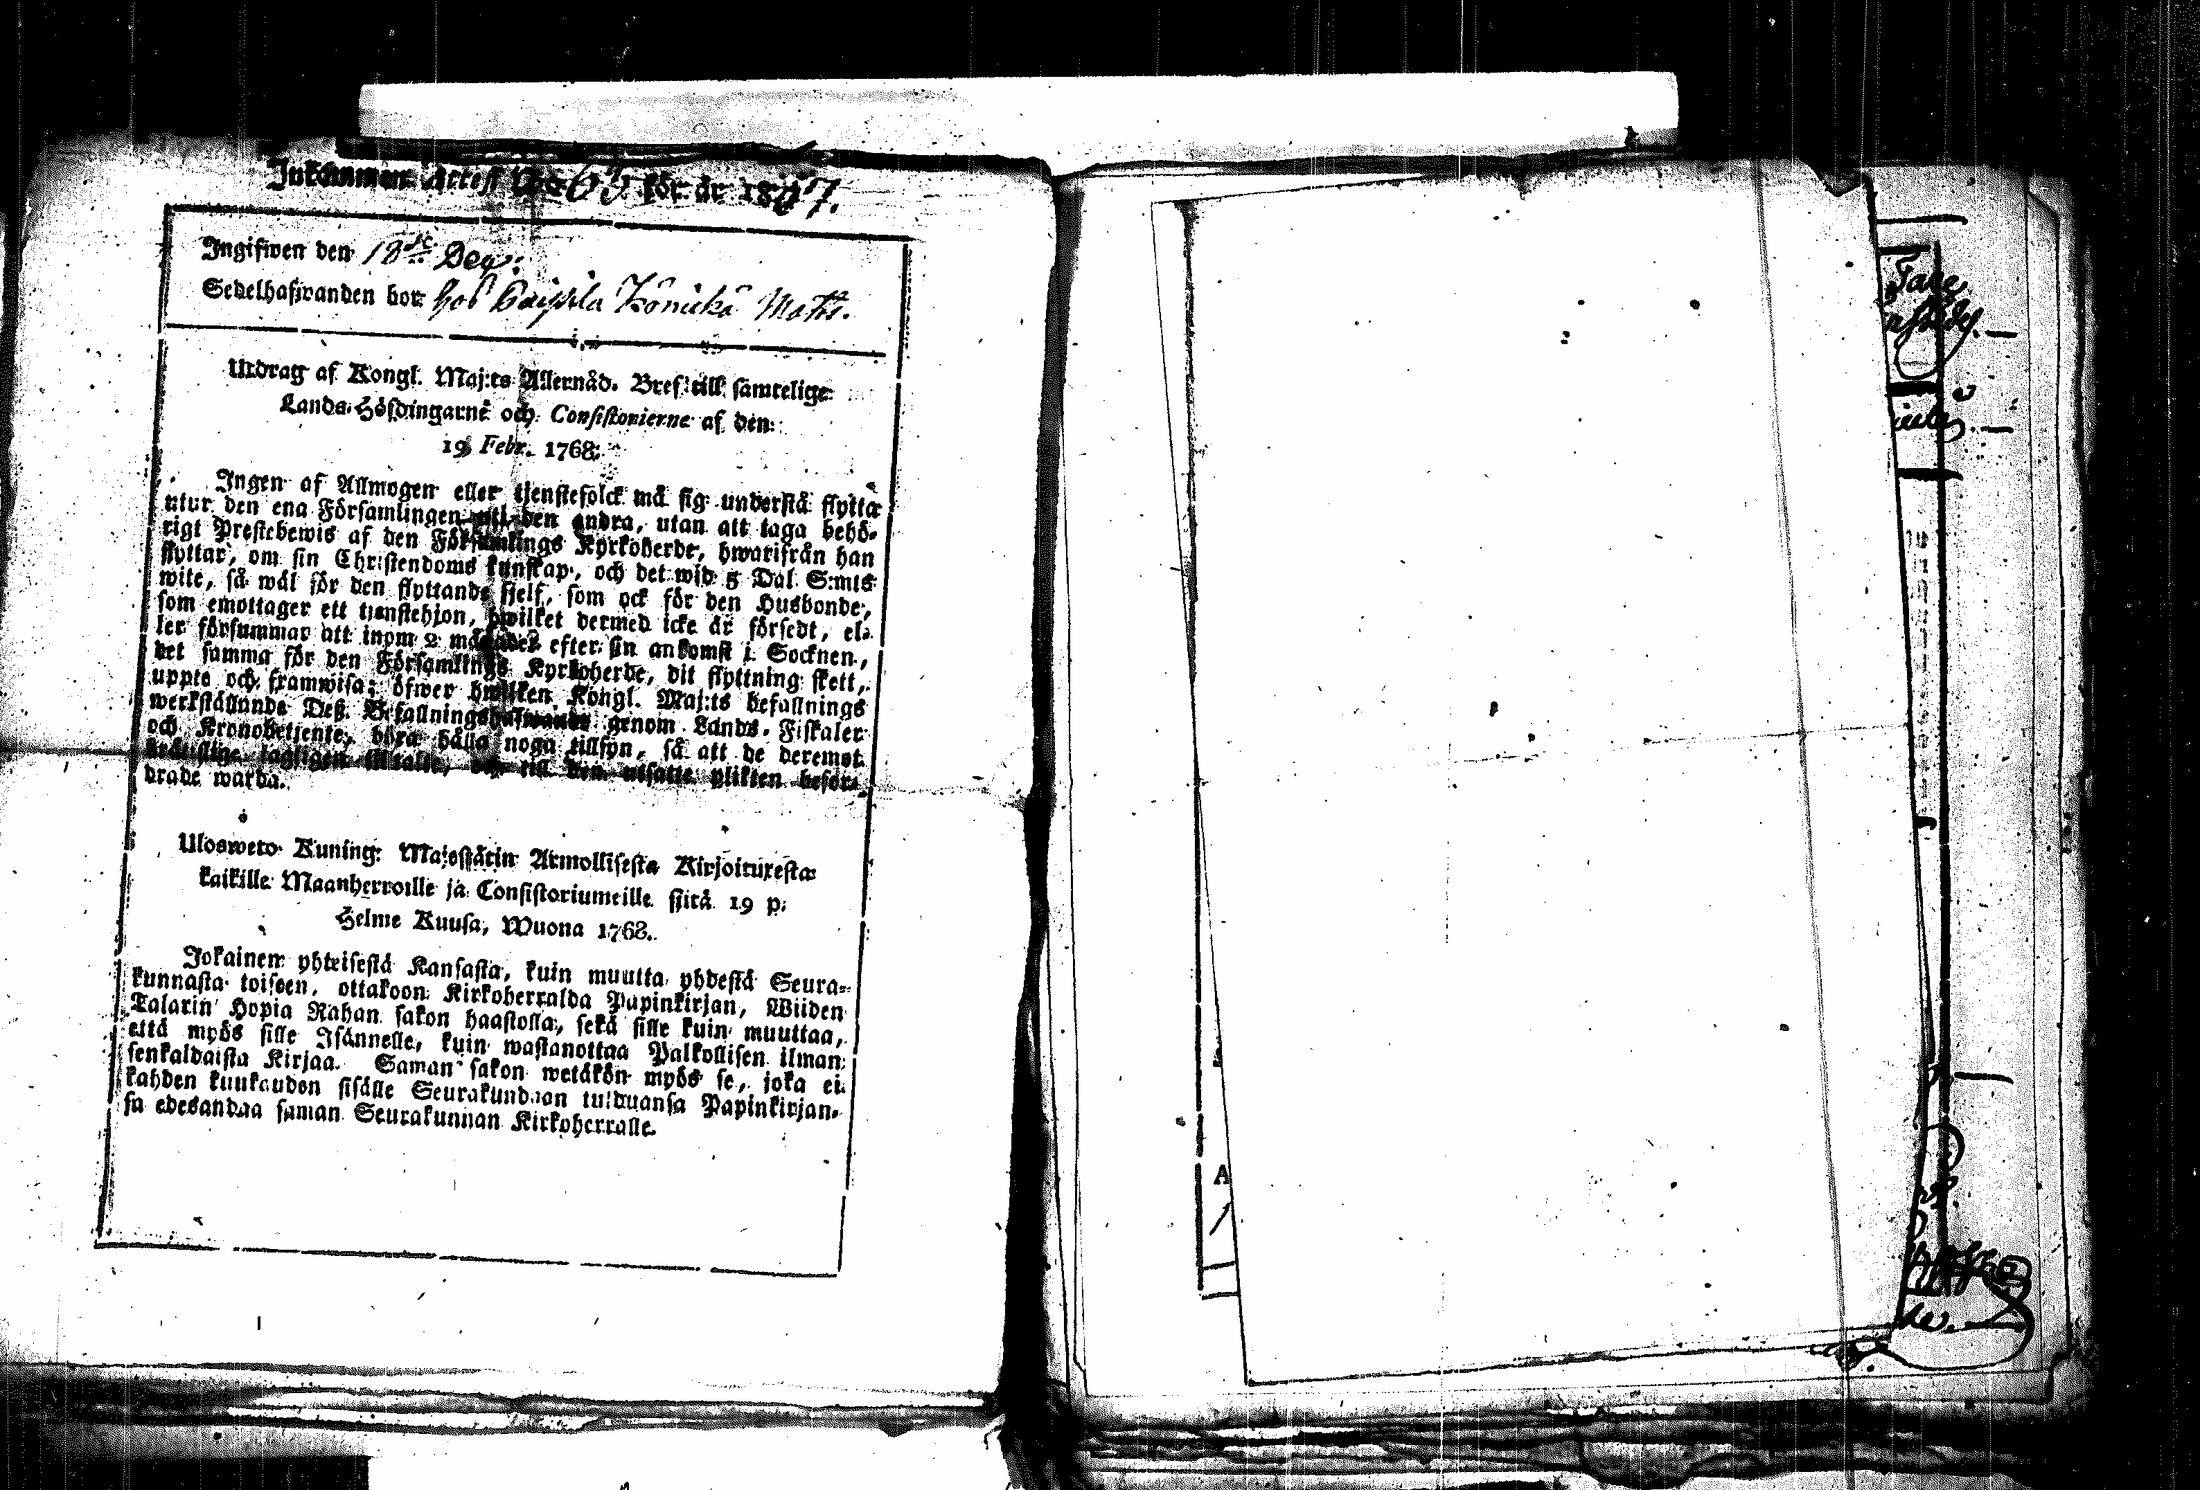 Inkommen Attest N:o 63 för år 1807.
Ingifwen den 18de Dec:
Sedelhafwanden bor hos Matts.
Utdrag af Kongl. Maj:ts Allernåd. Bref till samtelige
Lands-Höfdingarne och Consistorierne af den
19 Febr. 1768.
Ingen af Allmogen eller tjenstefolck må sig understå flytta
utur den ena Församlingen uti den andra, utan att taga behö-
rigt Prestebewis af den Församlings Kyrkoherde, hwarifrån han
flyttar, om sin Christendoms kunskap, och det wid 5 Dal S:mts
wite, så wäl för den flyttande sjelf, som ock för den Husbonde,
som emottager ett tjenstehjon, hwilket dermed icke är försedt, el-
ler försummar att inom 2 månader efter sin ankomst i Socknen,
det samma för den Församlings Kyrkoherde, dit flyttning skett,
uppte och framwisa; öfwer hwilken Kongl. Maj:ts befallnings
werkställande Deß Befallningshafwande genom Lands-Fiskaler
och Kronobetjente, böra hålla noga tillsyn, så att de deremot
bråttslige lagligen tilltalte, och till den utsatte plikten beför-
drade warda.
Ulosweto Kuning: Majestätin Armollisesta Kirjoituxesta
kaikille Maanherroille ja Consistoriumeille siitä 19 p:
Helme Kuusa, Wuona 1768.
Jokainen yhteisestä Kansasta, kuin muutta yhdestä Seura-
kunnasta toiseen, ottakoon Kirkoherralda Papinkirjan, Wiiden
Talarin Hopia Rahan sakon haastolla, sekä sille kuin muuttaa,
että myös sille Isännelle, kuin wastanottaa Palkollisen ilman
senkaldaista Kirjaa. Saman sakon wetäkön myös se, joka ei
kahden kuukauden sisälle Seurakundaan tulduansa Papinkirjan-
sa edesandaa saman Seurakunnan Kirkoherralle.
A